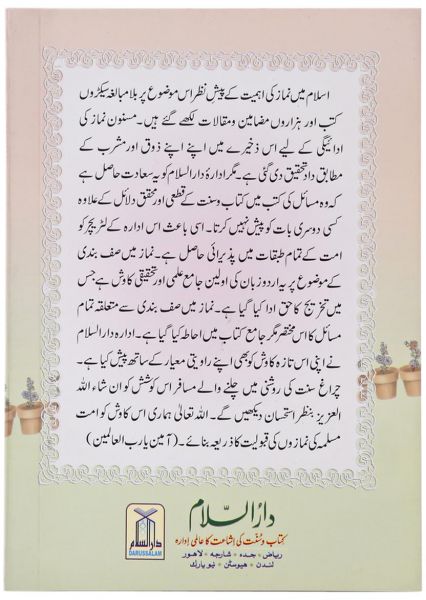 اسلام میں نماز کی اہمیت کے پیش نظر اس موضوع پر بلا مبالغہ سیکڑوں
کتب اور ہزاروں مضامین و مقالات لکھے گئے ہیں۔ مسنون نماز کی
ادائیگی کے لیے اس ذخیرے میں اپنے اپنے ذوق اور مشرب کے
مطابق داد تحقیق دی گئی ہے۔ مگر ادارۂ دارالسلام کو یہ سعادت حاصل ہے
کہ وہ مسائل کی کتب میں کتاب و سنت کے قطعی اور محقق دلائل کے علاوہ
کسی دوسری بات کو پیش نہیں کرتا۔ اسی باعث اس ادارہ کے لٹریچر کو
امت کے تمام طبقات میں پذیرائی حاصل ہے۔ نماز میں صف بندی
کے موضوع پر یہ اردو زبان کی اولین جامع علمی اور تحقیقی کاوش ہے جس
میں تخریج کا حق ادا کیا گیا ہے۔ نماز میں صف بندی سے متعلقہ تمام
مسائل کا اس مختصر مگر جامع کتاب میں احاطہ کیا گیا ہے۔ ادارہ دارالسلام
نے اپنی اس تازہ کاوش کو بھی اپنے روایتی معیار کے ساتھ پیش کیا ہے۔
چراغ سنت کی روشنی میں چلنے والے مسافر اس کوشش کو ان شاء اللہ
العزیز بنظر استحسان دیکھیں گے۔ اللہ تعالیٰ ہماری اس کاوش کو امت
مسلمہ کی نمازوں کی قبولیت کا ذریعہ بنائے۔ (آمین یا رب العالمین)
دارالسلام
کتاب و سنت کی اشاعت کا عالمی ادارہ
ریاض • جدہ • شارجہ • لاهور
لندن • هیوسٹن • نیو یارك
دارالسلام
DARUSSALAM